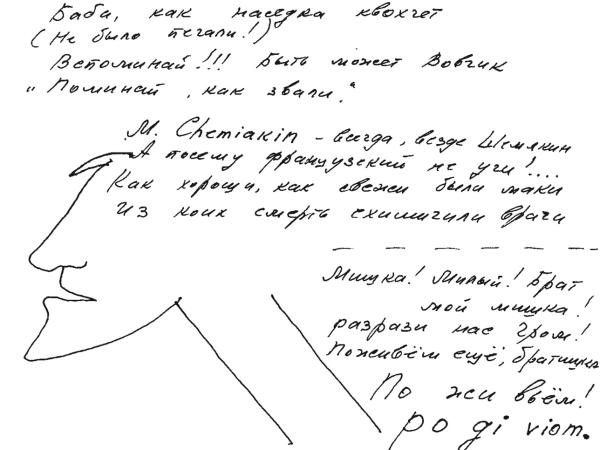 Баба, как наседка квохчет
(Не было печали!)
Вспоминай!!! Быть может Вовчик
"Поминай, как звали."
М. Chemiakin – всегда, везде Шемякин
А посему французский не учи!....
Как хороши, как свежи были маки
Из коих смерть схимичили врачи
Мишка! Милый! Брат
мой Мишка!
разрази нас Гром!
Поживём ещё, братишка
По жи вьём!
po gi viom.